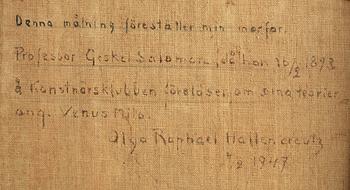 Denna målning föreställer min morfar.
Professor Geskel Saloman, då han 20/2 1893
å Konstnärsklubben föreläser om sina teorier
ang. Venus Milo.
Olga Raphael Hallencreutz
1947